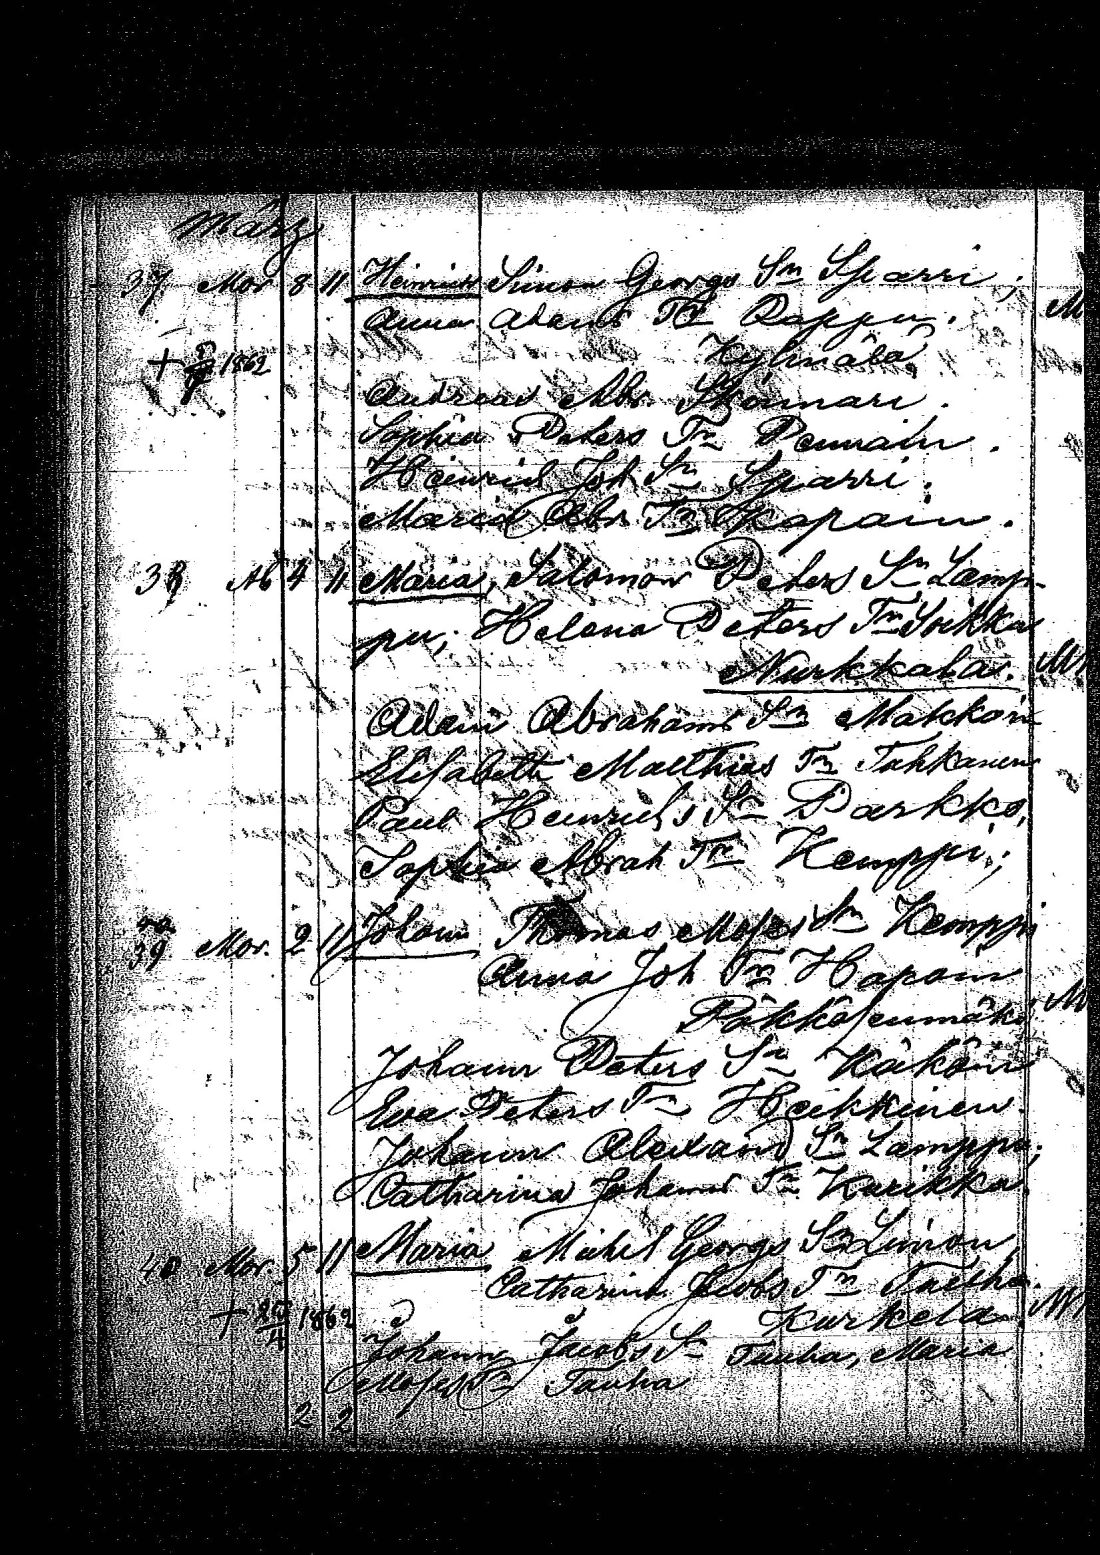 März
37 Mor 8 11 Heinrich Simon Georgs Sn Sparri;
Anna Adams Tr Roppu.
Kylmälä
+ 1862
Andreas Abr.
Sophia Peters Tr
Heinrich Joh Sn Sparri.
Maria Abr Tr Hapain.
38 Ab 4 11 Maria, Salomon Peters Sn Lamp-
pu; Helena Peters Tr Soikka
Nurkkala.
Adam Abrahams Sn Makkoin
Elisabeth Matthias Tr Tahkanen
Paul Heinrichs Sn Parkko,
Sophia Abrah Tr Kemppi;
39 Mor. 2 11 Johann Thomas Moses Sn Kemppi
Anna Joh Tr Hapain
Johann Peters Sn Käköin
Eva Peters Tr Heikkinen
Johann Alexand Sn Lamppu;
Catharina Johanns Tr Kurikka.
40 Mor. 5 11 Maria Michel Georgs Sn Limon,
Catharina Jacobs Tr Tauha.
+ 1862 Kurkela.
Johann Jacobs Sn Tauha, Maria
Moses Tr Tauha
2 2